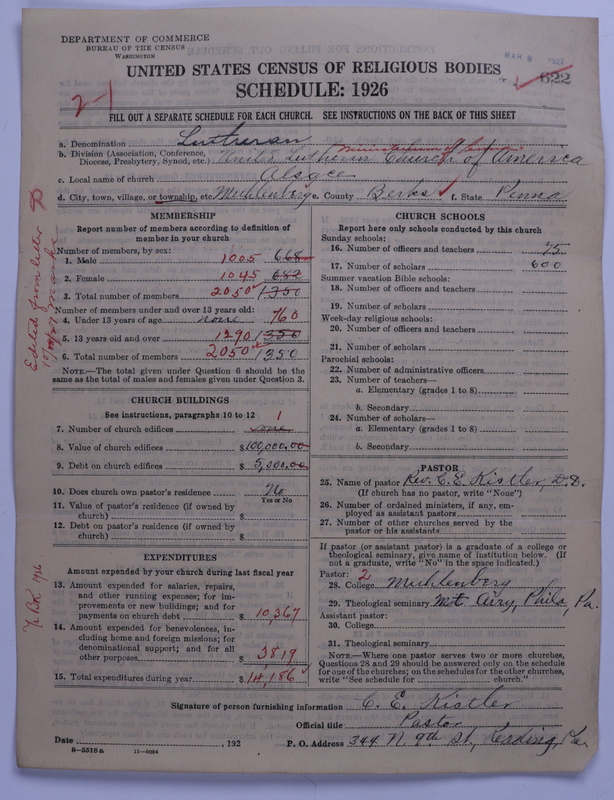 DEPARTMENT OF COMMERCE
BUREAU OF THE CENSUS
WASHINGTON
MAR 9 1927
UNITED STATES CENSUS OF RELIGIOUS BODIES
SCHEDULE: 1926
622
2-1
FILL OUT A SEPARATE SCHEDULE FOR EACH CHURCH. SEE INSTRUCTIONS ON THE BACK OF THIS SHEET
a. Denomination Lutheran
b. Division (Association, Conference, Diocese, Presbytery, Synod, etc.) United Lutheran Church of America
Ministerium of
c. Local name of church Alsace
d. City, town, village, or township, etc. Muhlenberg e. County Berks f. State Penna
MEMBERSHIP
Report number of members according to definition of
member in your church
Number of members, by sex:
1. Male 1005 668
2. Female 1045 682
3. Total number of members 2050 1350
Number of members under and over 13 years old:
4. Under 13 years of age none 760
5. 13 years old and over 1290 1350
6. Total number of members 2050 1350
NOTE.—The total given under Question 6 should be the
same as the total of males and females given under Question 3.
Edited from letter
CHURCH BUILDINGS
See instructions, paragraphs 10 to 12
7. Number of church edifices 1
8. Value of church edifices $100,000.00
9. Debt on church edifices $5,000.00
10. Does church own pastor's residence No
Yes or No
11. Value of pastor's residence (if owned by
church) $
12. Debt on pastor's residence (if owned by
church) $
EXPENDITURES
Amount expended by your church during last fiscal year
13. Amount expended for salaries, repairs,
and other running expenses; for im-
provements or new buildings; and for
payments on church debt $ 10,367
14. Amount expended for benevolences, in-
cluding home and foreign missions; for
denominational support; and for all
other purposes $ 3819
15. Total expenditures during year $ 14,186
Y. BK 1926
CHURCH SCHOOLS
Report here only schools conducted by this church
Sunday schools:
16. Number of officers and teachers 75
17. Number of scholars 600
Summer vacation Bible schools:
18. Number of officers and teachers
19. Number of scholars
Week-day religious schools:
20. Number of officers and teachers
21. Number of scholars
Parochial schools:
22. Number of administrative officers
23. Number of teachers—
a. Elementary (grades 1 to 8)
b. Secondary
24. Number of scholars—
a. Elementary (grades 1 to 8)
b. Secondary
PASTOR
25. Name of pastor Rev. C. E. Kistler, D.D.
(If church has no pastor, write "None")
26. Number of ordained ministers, if any, em-
ployed as assistant pastors
27. Number of other churches served by the
pastor or his assistants
If pastor (or assistant pastor) is a graduate of a college or
theological seminary, give name of institution below. (If
not a graduate, write "No" in the space indicated.)
Pastor: 2
28. College Muhlenberg
29. Theological seminary Mt. Airy, Phila, Pa.
Assistant pastor:
30. College
31. Theological seminary
NOTE.—Where one pastor serves two or more churches,
Questions 28 and 29 should be answered only on the schedule
for one of the churches; on the schedules for the other churches,
write "See schedule for ____ church."
Signature of person furnishing information C. E. Kistler
Official title Pastor
Date , 192
P. O. Address 344 N. 9th St, Reading, Pa.
8—5518a 11—9064